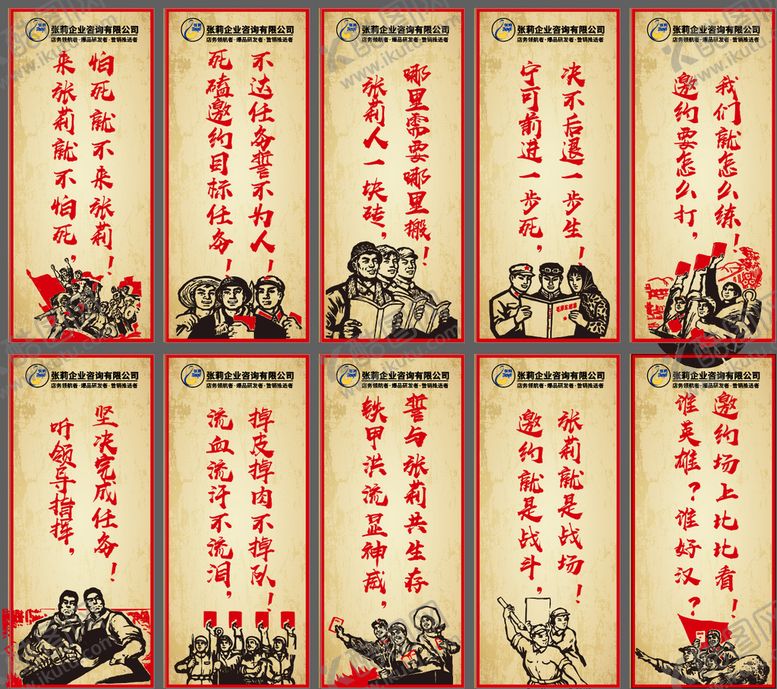 张莉企业咨询有限公司
店务领航者·爆品研发者·营销推进者
来张莉就不怕死，
怕死就不来张莉！
张莉企业咨询有限公司
店务领航者·爆品研发者·营销推进者
死磕邀约目标任务！
不达任务誓不为人！
张莉企业咨询有限公司
店务领航者·爆品研发者·营销推进者
张莉人一块砖，
哪里需要哪里搬！
张莉企业咨询有限公司
店务领航者·爆品研发者·营销推进者
宁可前进一步死，
决不后退一步生！
张莉企业咨询有限公司
店务领航者·爆品研发者·营销推进者
邀约要怎么打，
我们就怎么练！
张莉企业咨询有限公司
店务领航者·爆品研发者·营销推进者
听领导指挥，
坚决完成任务！
张莉企业咨询有限公司
店务领航者·爆品研发者·营销推进者
流血流汗不流泪，
掉皮掉肉不掉队！
张莉企业咨询有限公司
店务领航者·爆品研发者·营销推进者
铁甲洪流显神威，
誓与张莉共生存
张莉企业咨询有限公司
店务领航者·爆品研发者·营销推进者
邀约就是战斗，
张莉就是战场！
张莉企业咨询有限公司
店务领航者·爆品研发者·营销推进者
谁英雄？谁好汉？
邀约场上比比看！